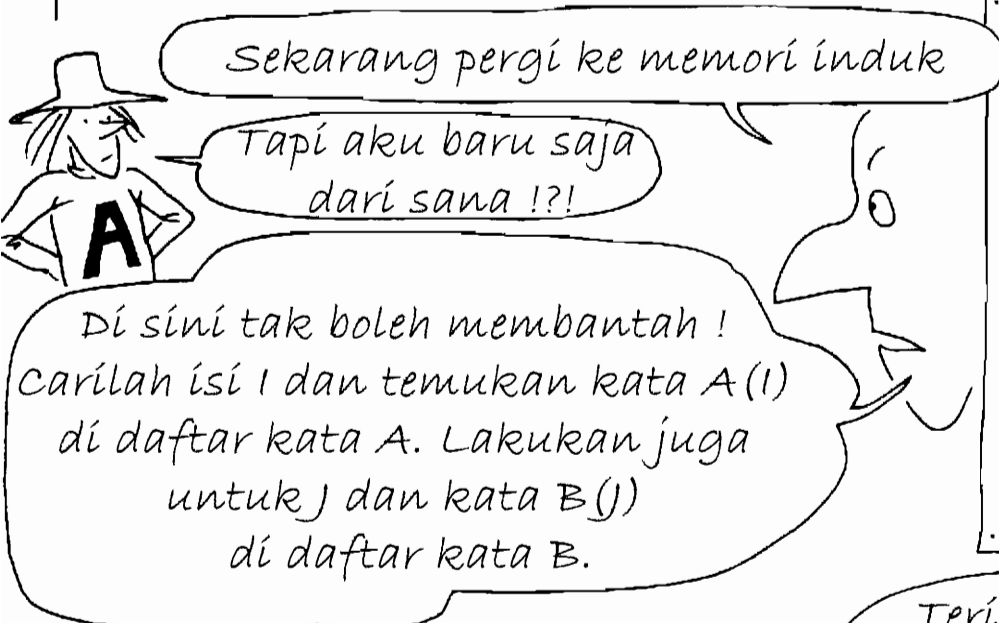 Sekarang pergi ke memori induk
Tapi aku baru saja
dari sana !?!
A
Di sini tak boleh membantah !
Carilah isi I dan temukan kata A(I)
di daftar kata A. Lakukan juga
untuk J dan kata B(J)
di daftar kata B.